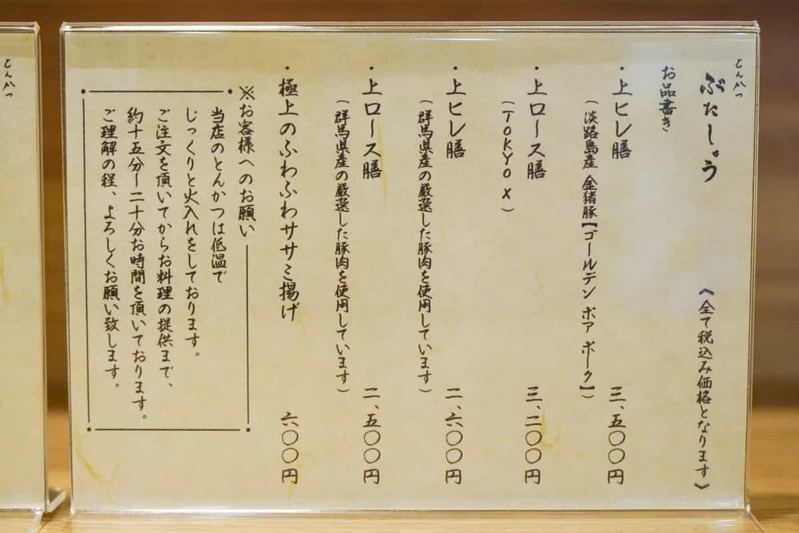 とんかつ
ぶたしょう
《全て税込み価格となります》
お品書き
・上ヒレ膳 三、五〇〇円
(淡路島産 金猪豚【ゴールデン ボア ポーク】)
・上ロース膳 三、二〇〇円
(TOKYO X)
・上ヒレ膳 二、六〇〇円
(群馬県産の厳選した豚肉を使用しています)
・上ロース膳 二、五〇〇円
(群馬県産の厳選した豚肉を使用しています)
・極上のふわふわササミ揚げ 六〇〇円
※お客様へのお願い
当店のとんかつは低温で
じっくりと火入れをしております。
ご注文を頂いてからお料理の提供まで、
約十五分〜二十分お時間を頂いております。
ご理解の程、よろしくお願い致します。
とんかつ